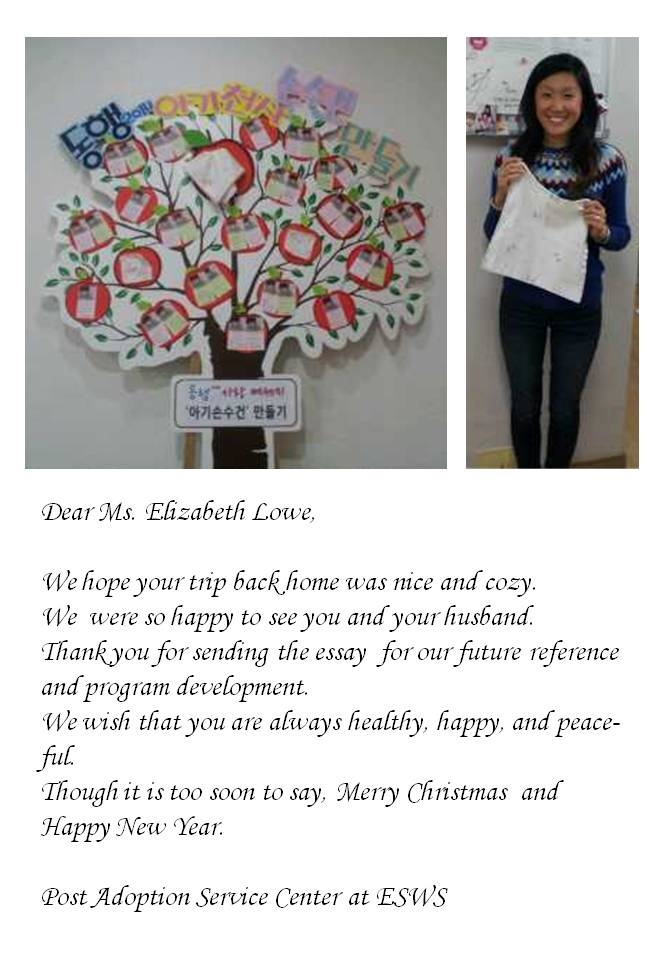 동행
아기천사
손수건
만들기
'아기손수건' 만들기
Dear Ms. Elizabeth Lowe,
We hope your trip back home was nice and cozy.
We were so happy to see you and your husband.
Thank you for sending the essay for our future reference
and program development.
We wish that you are always healthy, happy, and peace-
ful.
Though it is too soon to say, Merry Christmas and
Happy New Year.
Post Adoption Service Center at ESWS